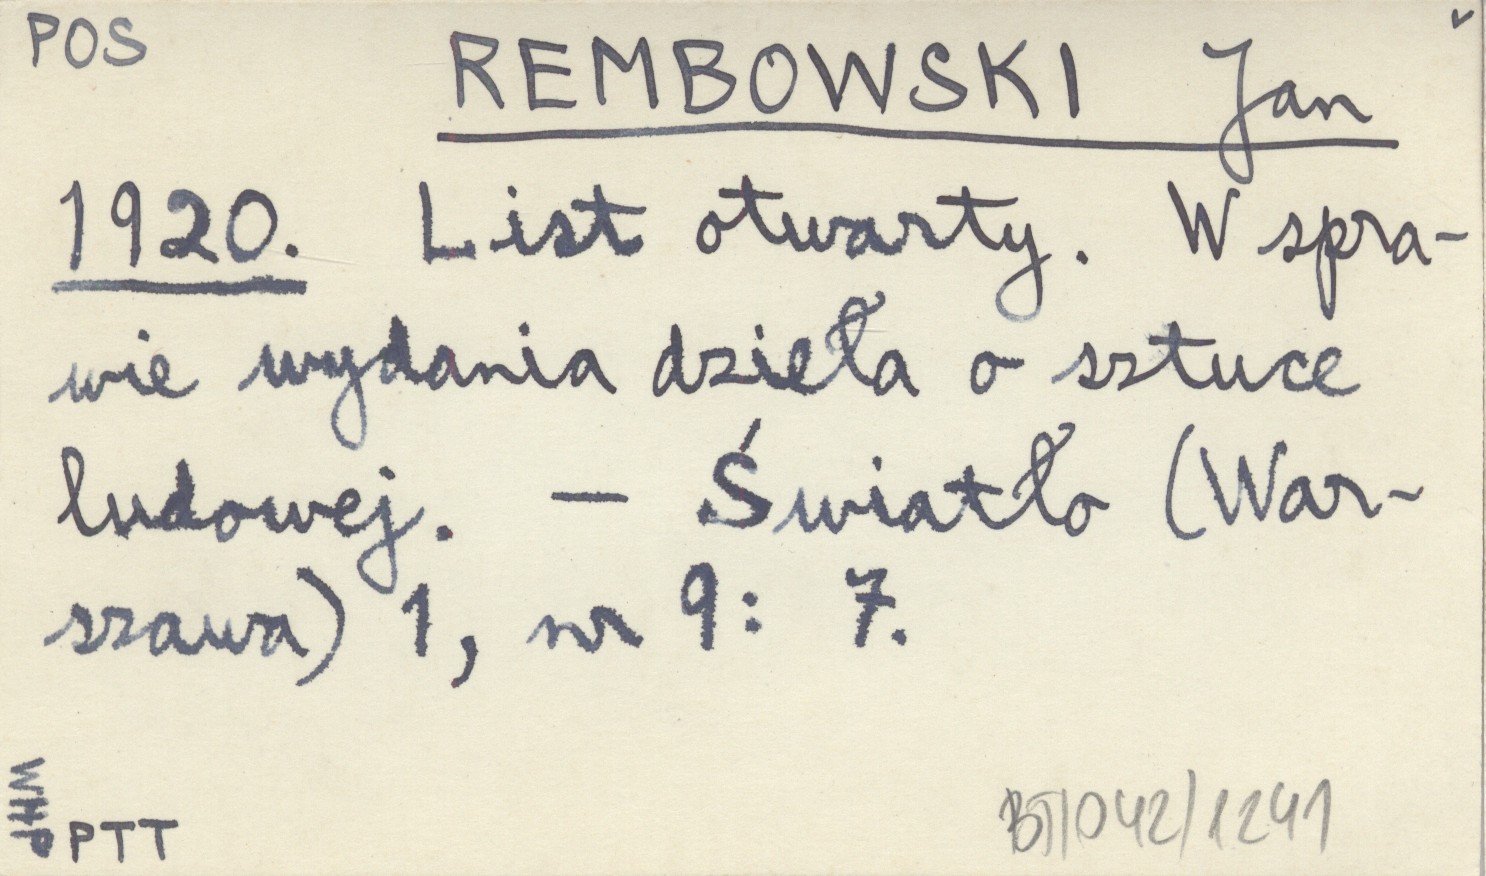 POS
REMBOWSKI Jan
1920. List otwarty. W spra-
wie wydania dzieła o sztuce
ludowej. — Światło (War-
szawa) 1, nr 9: 7.
WHP
PTT
BT/042/1241